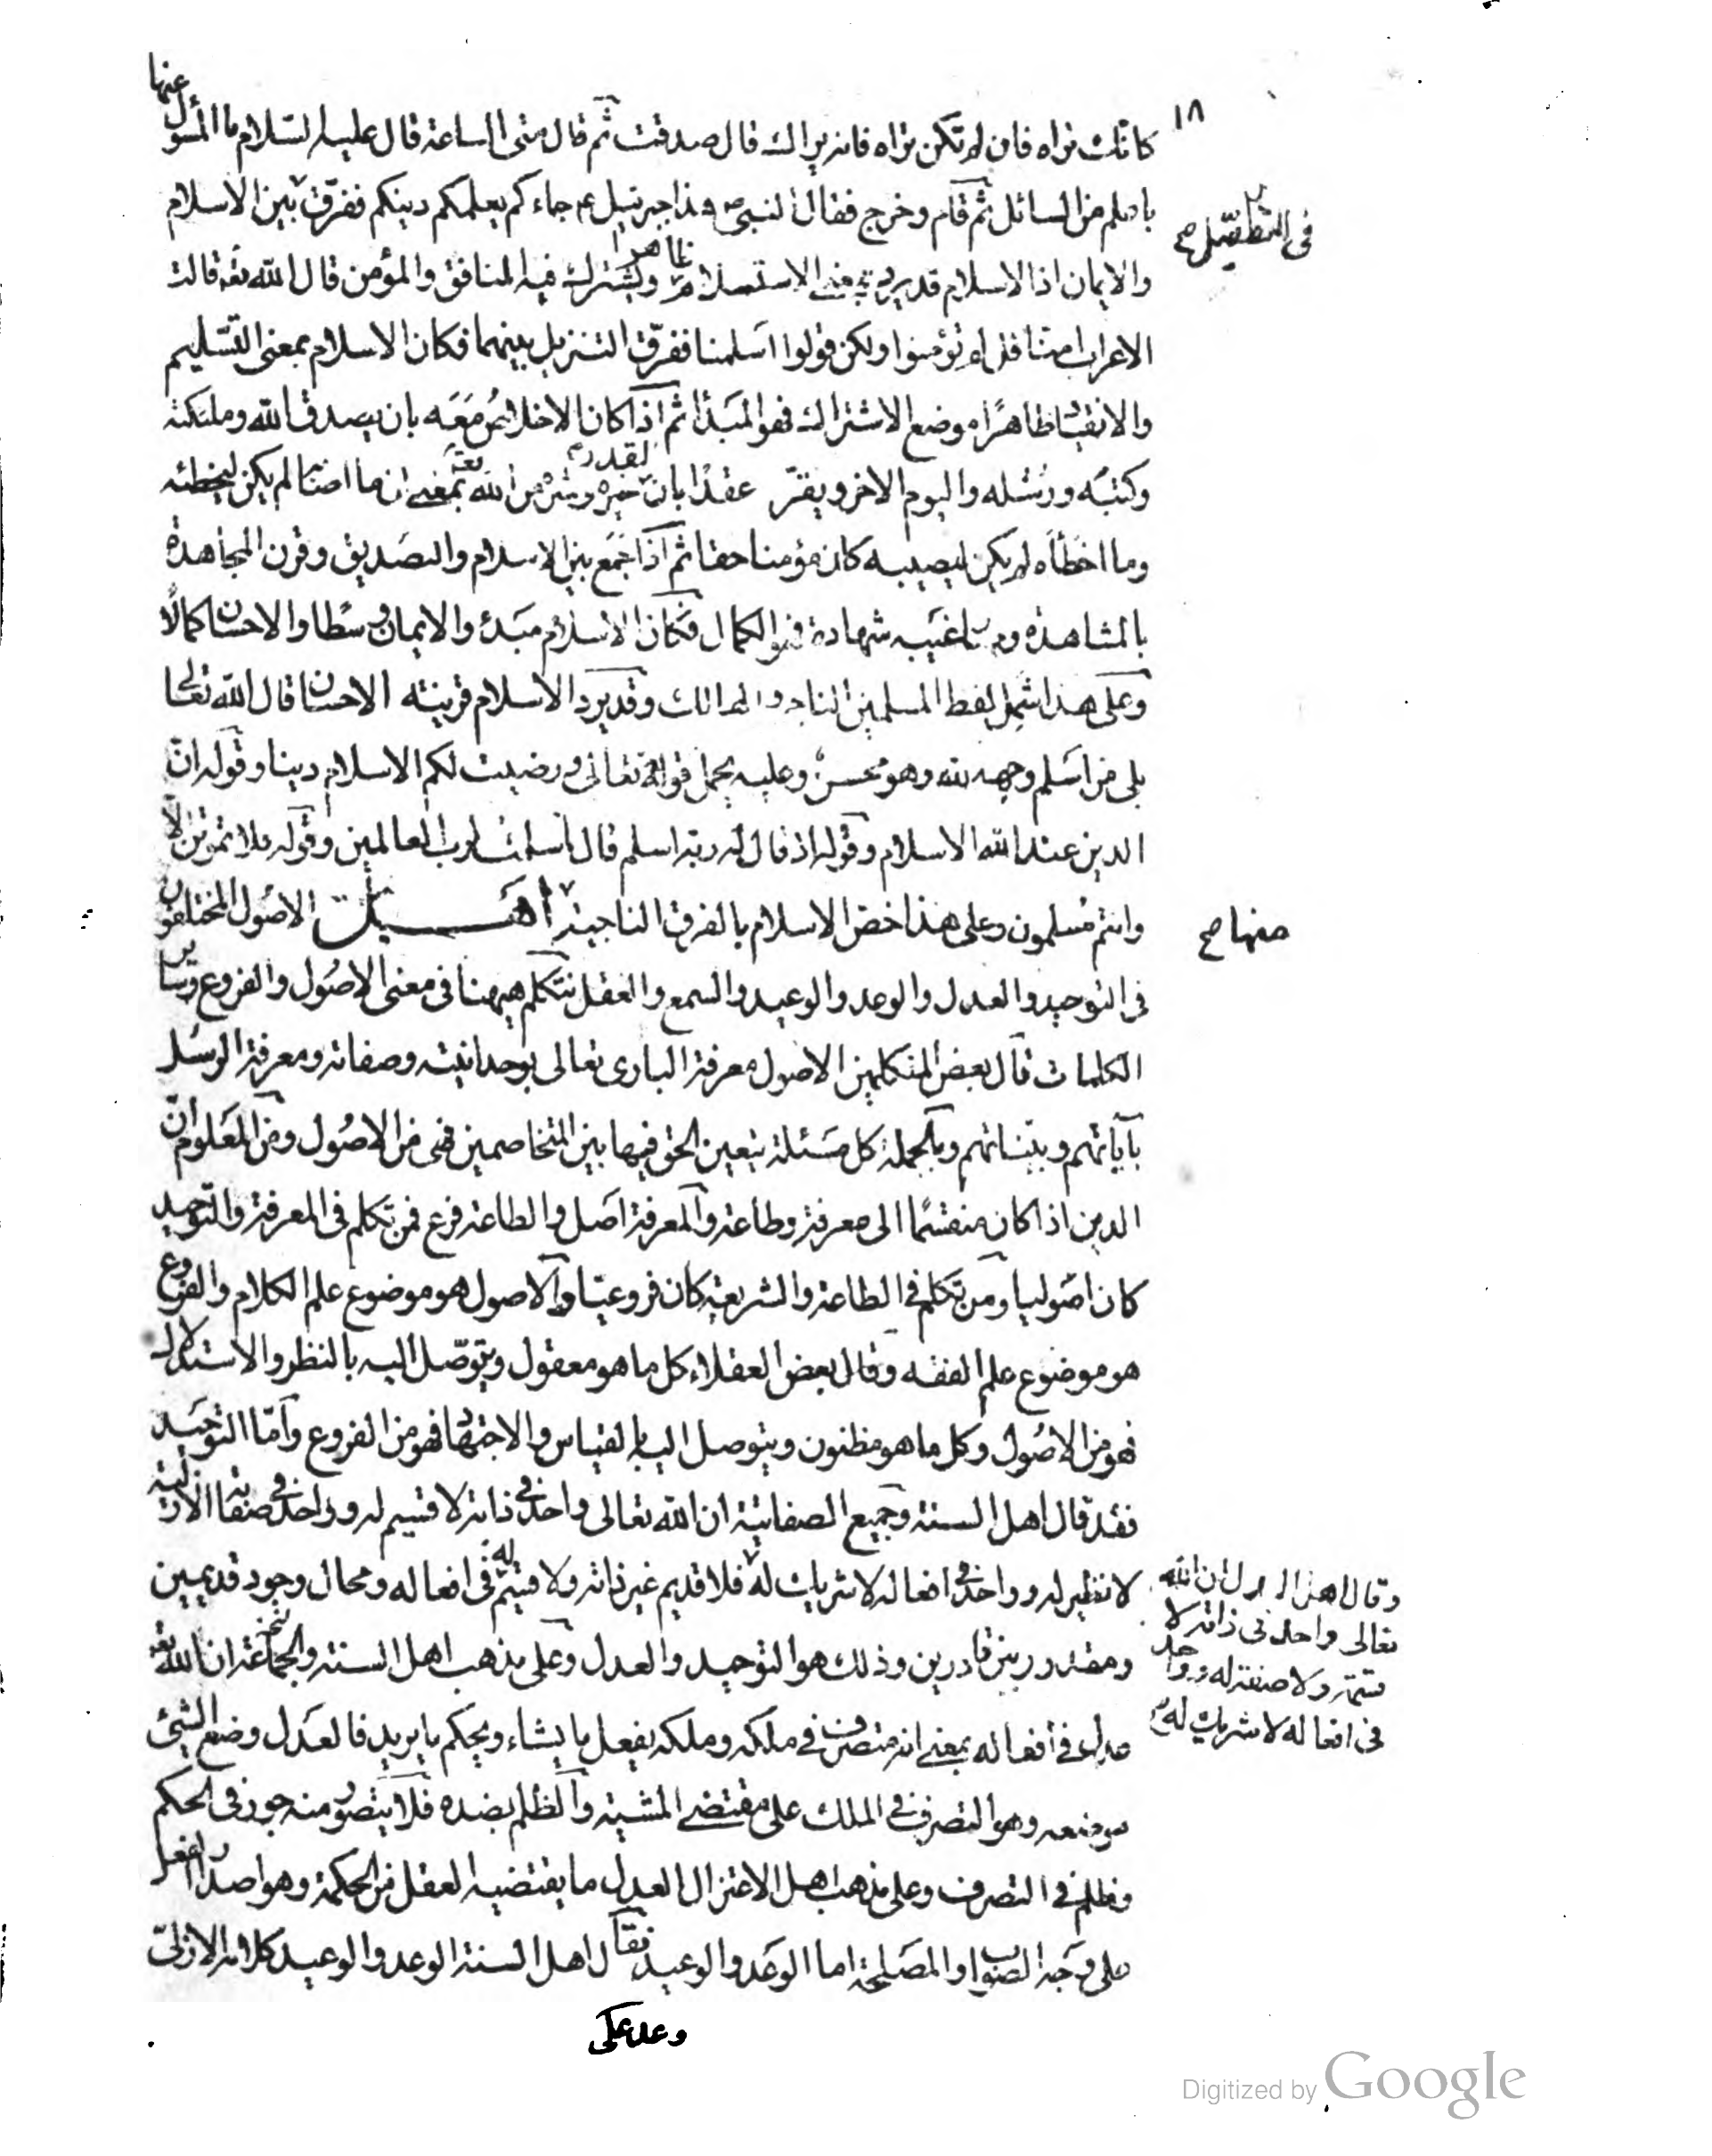 ١٨
كانك تراه فان لم تكن تراه فانه يراك قال صدقت ثم قال متى الساعة قال عليه السلام ما المسؤل عنها
باعلم من السائل ثم قام وخرج فقال النبي ص هذا جبرئيل ع جاءكم يعلمكم دينكم ففرق بين الاسلام
في التفصيل صح
والايمان اذ الاسلام قد يرد بمعنى الاستسلام ظاهرا ويشترك فيه المنافق والمؤمن قال الله تعه قالت
الاعراب امنا قل لم تؤمنوا ولكن قولوا اسلمنا ففرق التنزيل بينهما فكان الاسلام بمعنى التسليم
والانقياد ظاهرا موضع الاشتراك فهو المبدأ ثم اذا كان الاخلاص معه بان يصدق الله وملئكته
وكتبه ورسله واليوم الاخر ويقر عقدا بان القدر خيره وشره من الله تعه بمعنى ان ما اصابه لم يكن ليخطئه
وما اخطأه لم يكن ليصيبه كان مؤمنا حقا ثم اذا جمع بين الاسلام والتصديق وقرن المجاهدة
بالمشاهدة وصار غيبه شهادة فهو الكمال فكان الاسلام مبدء والايمان وسطا والاحسان كمالا
وعلى هذا شمل لفظ المسلمين الناجي والهالك وقد يرد الاسلام قرينته الاحسان قال الله تعالى
بلى من اسلم وجهه لله وهو محسن وعليه يحمل قوله تعالى ورضيت لكم الاسلام دينا وقوله ان
الدين عند الله الاسلام وقوله اذ قال له ربه اسلم قال اسلمت لرب العالمين وقوله فلا تموتن الا
وانتم مسلمون وعلى هذا خص الاسلام بالفرق الناجية اهــــل الاصول المختلفون
منها صح
في التوحيد والعدل والوعد والوعيد والسمع والعقل نتكلم ههنا في معنى الاصول والفروع وسائر
الكلمات قال بعض المتكلمين الاصول معرفة الباري تعالى بوحدانيته وصفاته ومعرفة الرسل
بآياتهم وبيناتهم وبالجملة كل مسئلة يتعين الحق فيها بين المتخاصمين فهي من الاصول ومن المعلوم ان
الدين اذا كان منقسما الى معرفة وطاعة والمعرفة اصل والطاعة فرع فمن تكلم في المعرفة والتوحيد
كان اصوليا ومن تكلم في الطاعة والشريعة كان فروعيا والاصول هو موضوع علم الكلام والفروع
هو موضوع علم الفقه وقال بعض العقلاء كل ما هو معقول ويتوصل اليه بالنظر والاستدلال
فهو من الاصول وكل ما هو مظنون ويتوصل اليه بالقياس والاجتهاد فهو من الفروع واما التوحيد
فقد قال اهل السنة وجميع الصفاتية ان الله تعالى واحد في ذاته لا قسيم له وواحد في صفاته الازلية
لا نظير له وواحد في افعاله لا شريك له فلا قديم غير ذاته ولا قسيم له في افعاله ومحال وجود قديمين
وقال اهل العدل ان الله
تعالى واحد في ذاته لا
قسمة ولا صفة له وواحد
في افعاله لا شريك له
ومقدور بين قادرين وذلك هو التوحيد والعدل وعلى مذهب اهل السنة والجماعة ان الله تعه
عدل في افعاله بمعنى انه متصرف في ملكه وملكه يفعل ما يشاء ويحكم ما يريد فالعدل وضع الشئ
موضعه وهو التصرف في الملك على مقتضى المشية والظلم بضده فلا يتصور منه جور في الحكم
وظلم في التصرف وعلى مذهب اهل الاعتزال العدل ما يقتضيه العقل من الحكمة وهو اصدار الفعل
على وجه الصواب والمصلحة اما الوعد والوعيد فقال اهل السنة الوعد والوعيد كلامه الازلي
وعد على
Digitized by Google